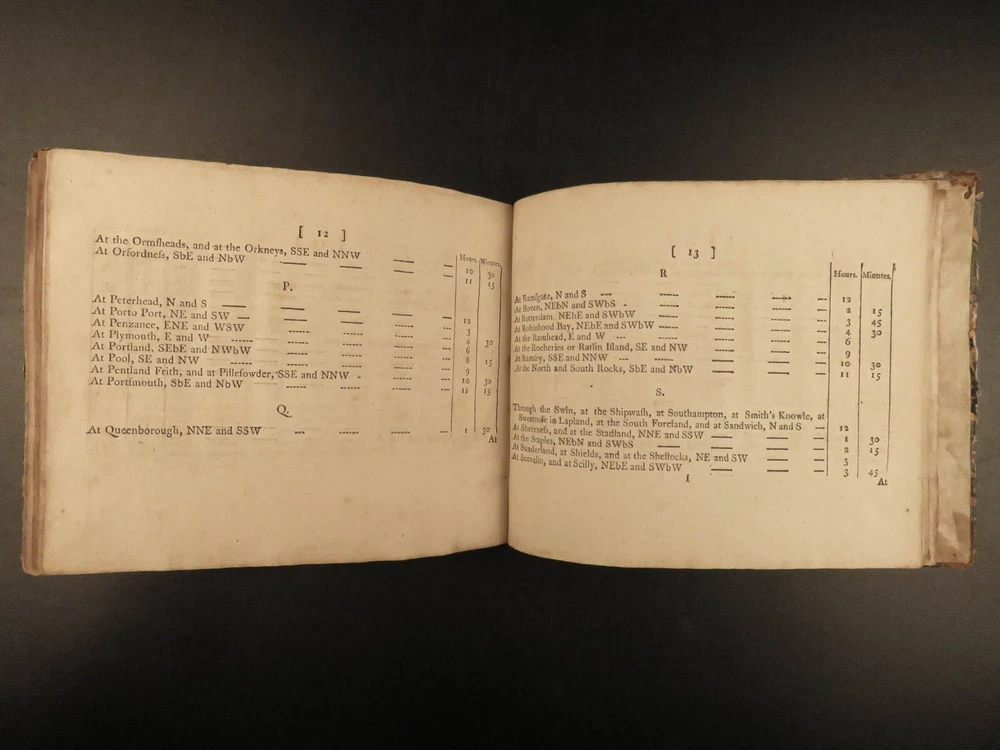 [ 12 ]
Hours. Minutes.
At the Ormſheads, and at the Orkneys, SSE and NNW — — — 10 30
At Orfordneſs, SbE and NbW — — — — 11 15
P.
At Peterhead, N and S — — — — 12
At Porto Port, NE and SW — — — — 3
At Penzance, ENE and WSW — — — 4 30
At Plymouth, E and W — — — — 6
At Portland, SEbE and NWbW — — — 8 15
At Pool, SE and NW — — — — 9
At Pentland Frith, and at Pilleſowder, SSE and NNW - — — 10 30
At Portſmouth, SbE and NbW — — — — 11 15
Q.
At Queenborough, NNE and SSW — — — — 1 30
At
[ 13 ]
R
Hours. Minutes.
At Ramſgate, N and S — — — — 12
At Roven, NEbN and SWbS - — — — 2 15
At Rotterdam, NEbE and SWbW — — — 3 45
At Robinhood Bay, NEbE and SWbW — — — 4 30
At the Ramhead, E and W — — — — 6
At the Rocheries or Ratlin Iſland, SE and NW — — — 9
At Ramſey, SSE and NNW — — — — 10 30
At the North and South Rocks, SbE and NbW — — — 11 15
S.
Through the Swin, at the Shipwaſh, at Southampton, at Smith's Knowle, at
Sweetnoſe in Lapland, at the South Foreland, and at Sandwich, N and S — 12
At Sheerneſs, and at the Stadland, NNE and SSW — — — 1 30
At the Staples, NEbN and SWbS — — — 2 15
At Sunderland, at Shields, and at the Shellocks, NE and SW — — 3
At Scevelin, and at Scilly, NEbE and SWbW — — — 3 45
I
At